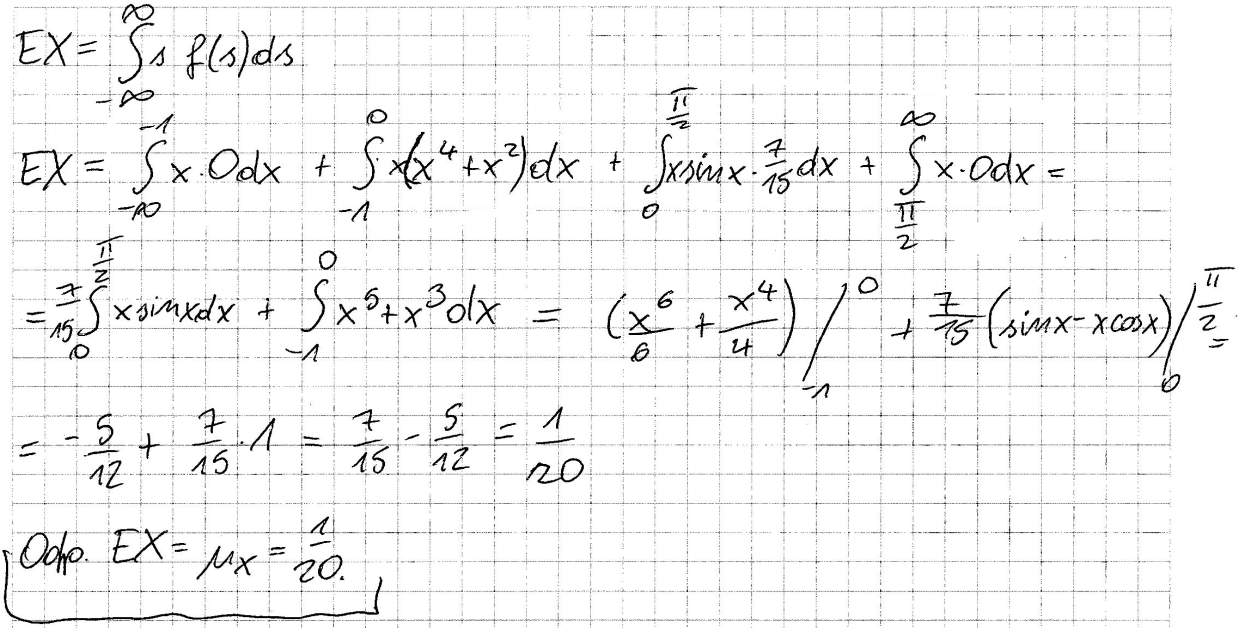 EX = ∫_{-∞}^{∞} s f(s)ds
EX = ∫_{-∞}^{-1} x·0dx + ∫_{-1}^{0} x(x⁴+x²)dx + ∫_{0}^{π/2} xsinx·7/15 dx + ∫_{π/2}^{∞} x·0dx =
= 7/15 ∫_{0}^{π/2} xsinxdx + ∫_{-1}^{0} x⁵+x³dx = (x⁶/6 + x⁴/4) /_{-1}^{0} + 7/15 (sinx-xcosx) /_{0}^{π/2} =
= -5/12 + 7/15·1 = 7/15 - 5/12 = 1/20
Odp. EX = μx = 1/20.